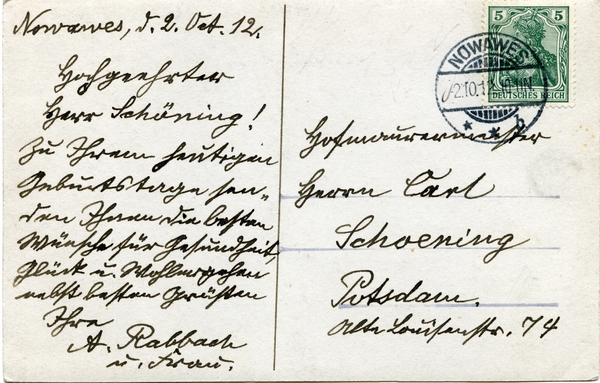 Nowawes, d. 2. Oct. 12.
Hochgeehrter
Herr Schöning!
Zu Ihrem heutigen
Geburtstage sen-
den Ihnen die besten
Wünsche für Gesundheit,
Glück u. Wohlergehen
nebst besten Grüßen
Ihre
A. Rabbach
u. Frau.
5 5
DEUTSCHES REICH
NOWAWES
2.10.12
b
Hofmaurermeister
Herrn Carl
Schoening
Potsdam.
Alte Louisenstr. 74